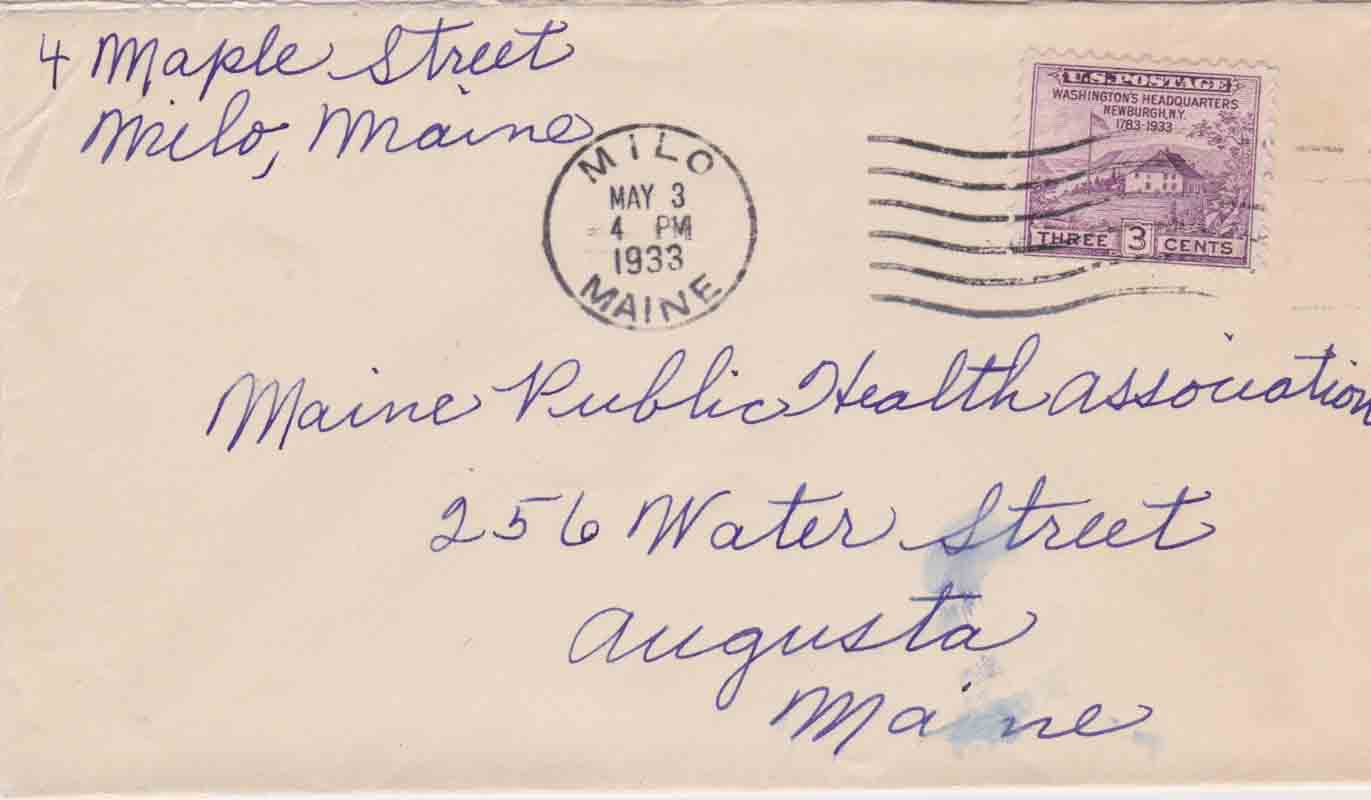 4 Maple Street
Milo, Maine
MILO
MAY 3
4 PM
1933
MAINE
U.S. POSTAGE
WASHINGTON'S HEADQUARTERS
NEWBURGH, N.Y.
1783-1933
THREE 3 CENTS
Maine Public Health Association
256 Water Street
Augusta
Maine